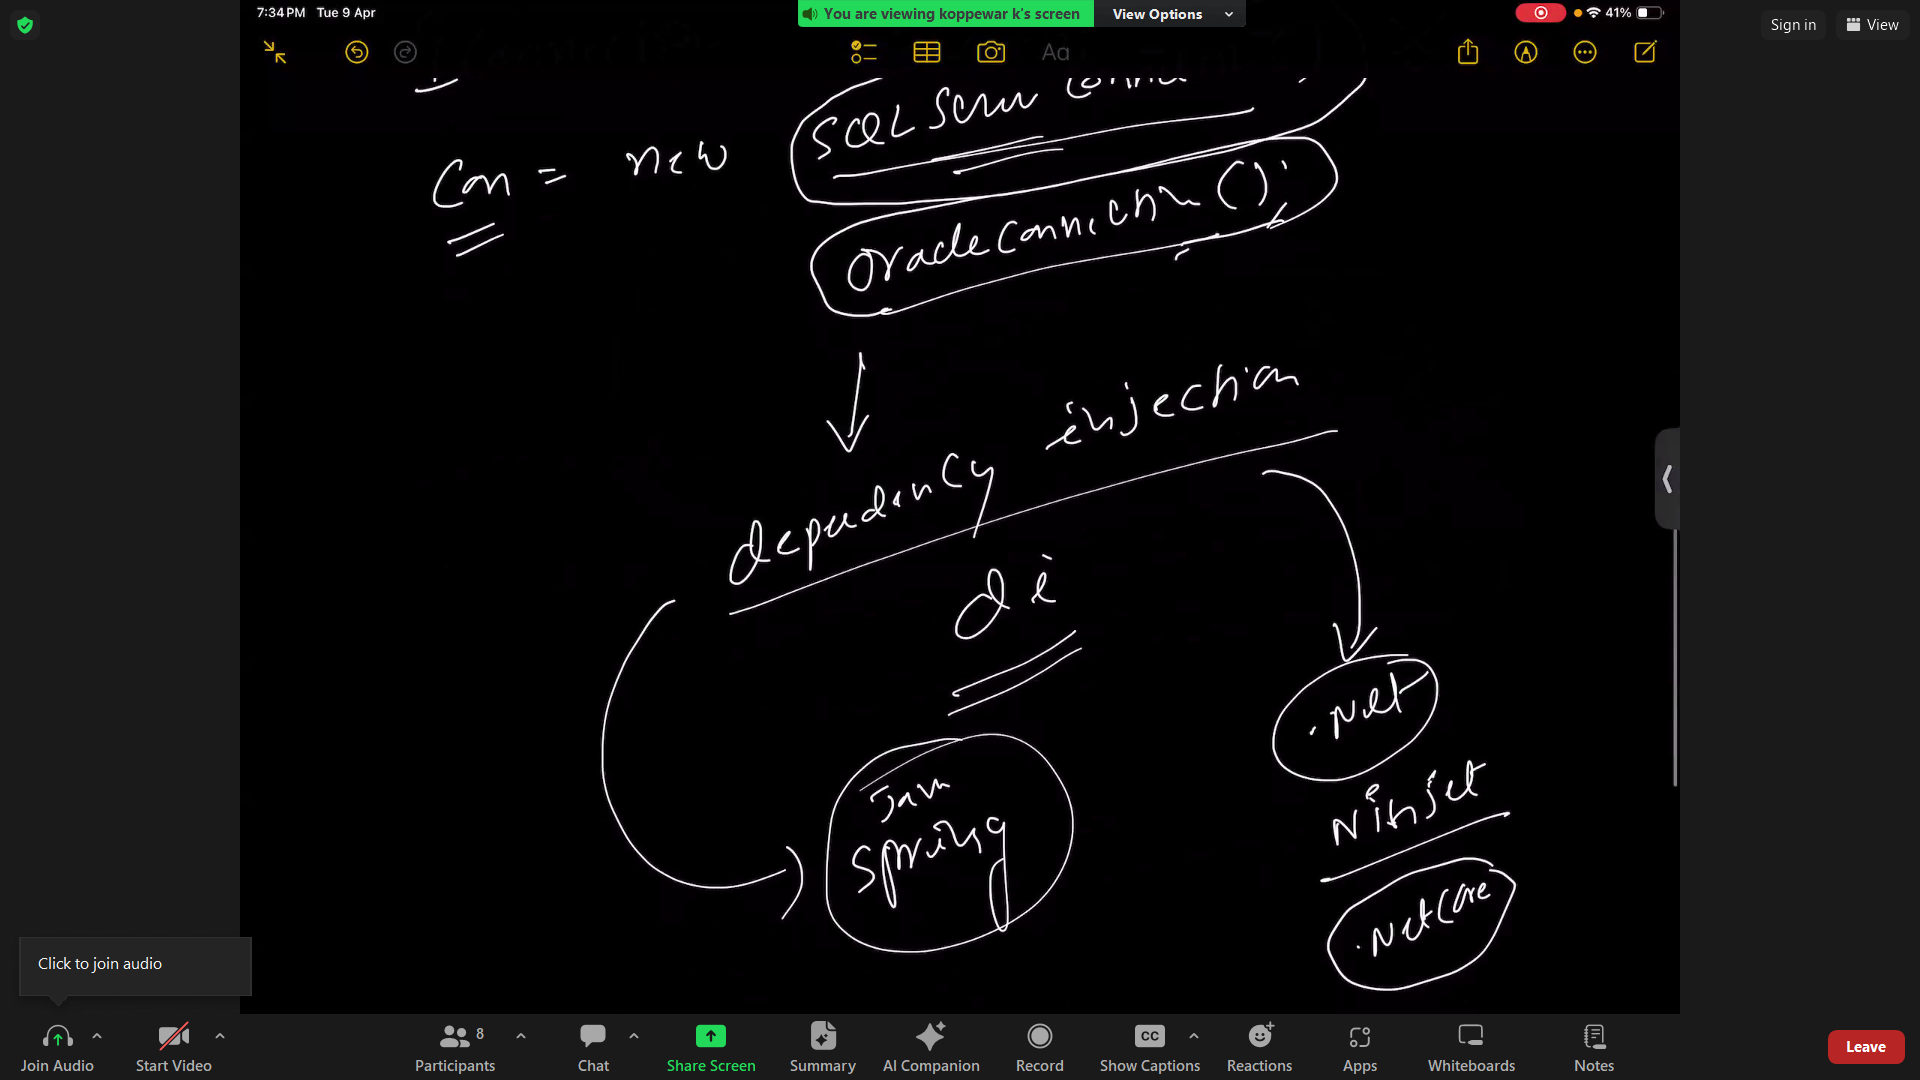 7:34 PM Tue 9 Apr
You are viewing koppewar k's screen
View Options
41%
Sign in
View
Aa
SQL Server
Con = new
OracleConnection();
dependency injection
di
.Net
Java
Spring
Ninject
.NetCore
Click to join audio
Join Audio
Start Video
Participants
8
Chat
Share Screen
Summary
AI Companion
CC
Record
Show Captions
Reactions
Apps
Whiteboards
Notes
Leave